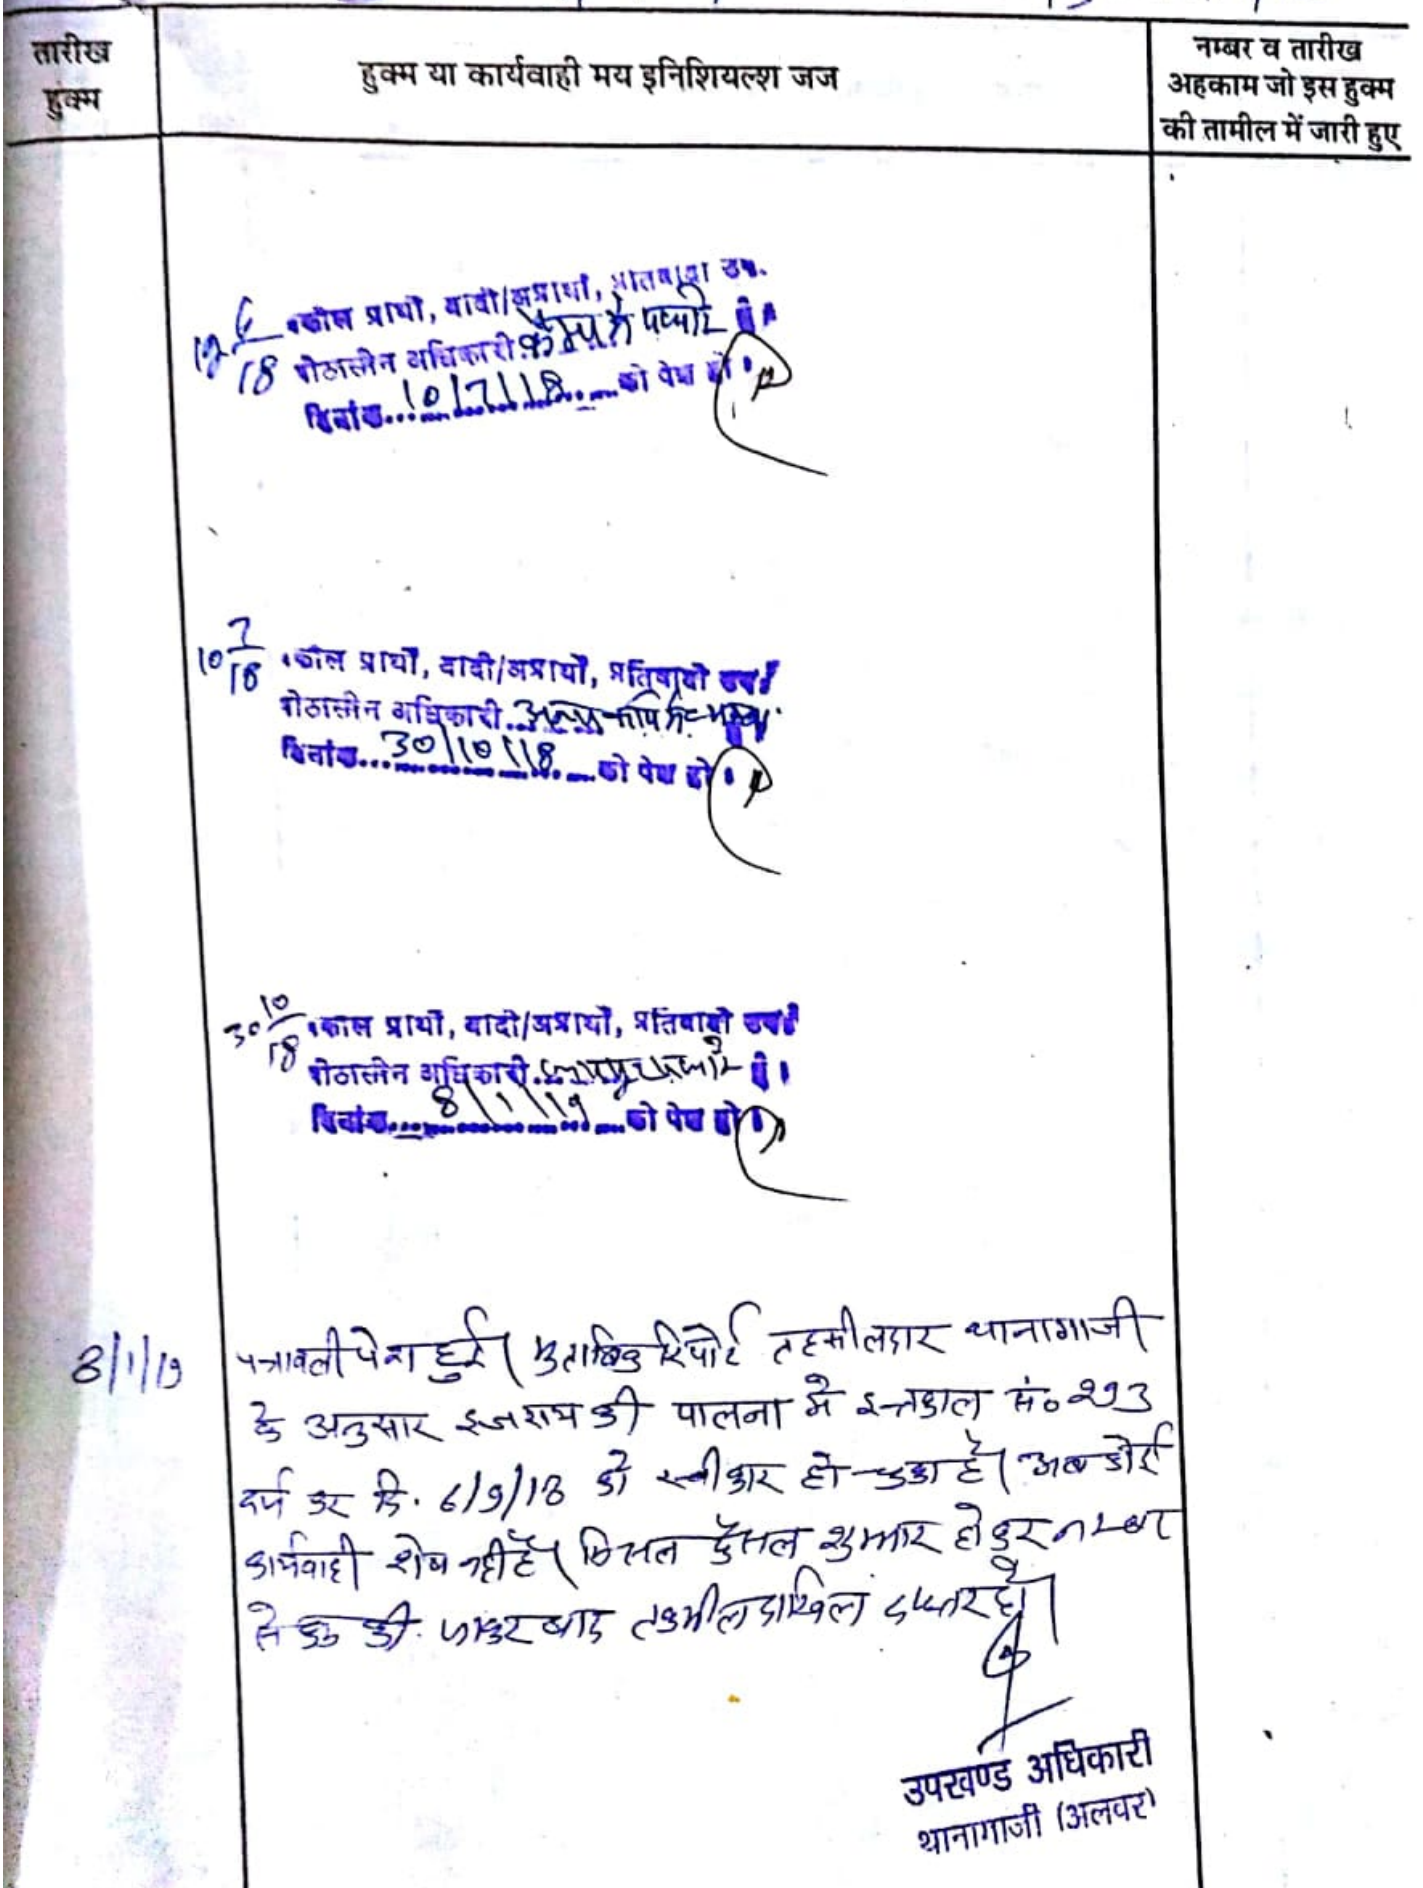 तारीख
हुक्म
हुक्म या कार्यवाही मय इनिशियल्श जज
नम्बर व तारीख
अहकाम जो इस हुक्म
की तामील में जारी हुए
12 6/18
वकील प्रार्थी, वादी/अप्रार्थी, प्रतिवादी उप.
पीठासीन अधिकारी कैम्प में पधारे है।
दिनांक...10/7/18...को पेश हो।
10 7/18
वकील प्रार्थी, वादी/अप्रार्थी, प्रतिवादी उप.
पीठासीन अधिकारी
दिनांक...30/10/18...को पेश हो।
30 10/18
वकील प्रार्थी, वादी/अप्रार्थी, प्रतिवादी उप.
पीठासीन अधिकारी है।
दिनांक...8/1/19...को पेश हो।
8/1/19
पत्रावली पेश हुई। मुताबिक रिपोर्ट तहसीलदार थानागाजी
के अनुसार इजराय की पालना में इन्तकाल सं० 293
दर्ज कर दि. 6/9/18 को स्वीकार हो चुका है। अब कोई
कार्यवाही शेष नहीं है। मिसल फैसल शुमार होकर नम्बर
से कम की जाकर बाद तकमील दाखिल दफ्तर हो।
उपखण्ड अधिकारी
थानागाजी (अलवर)